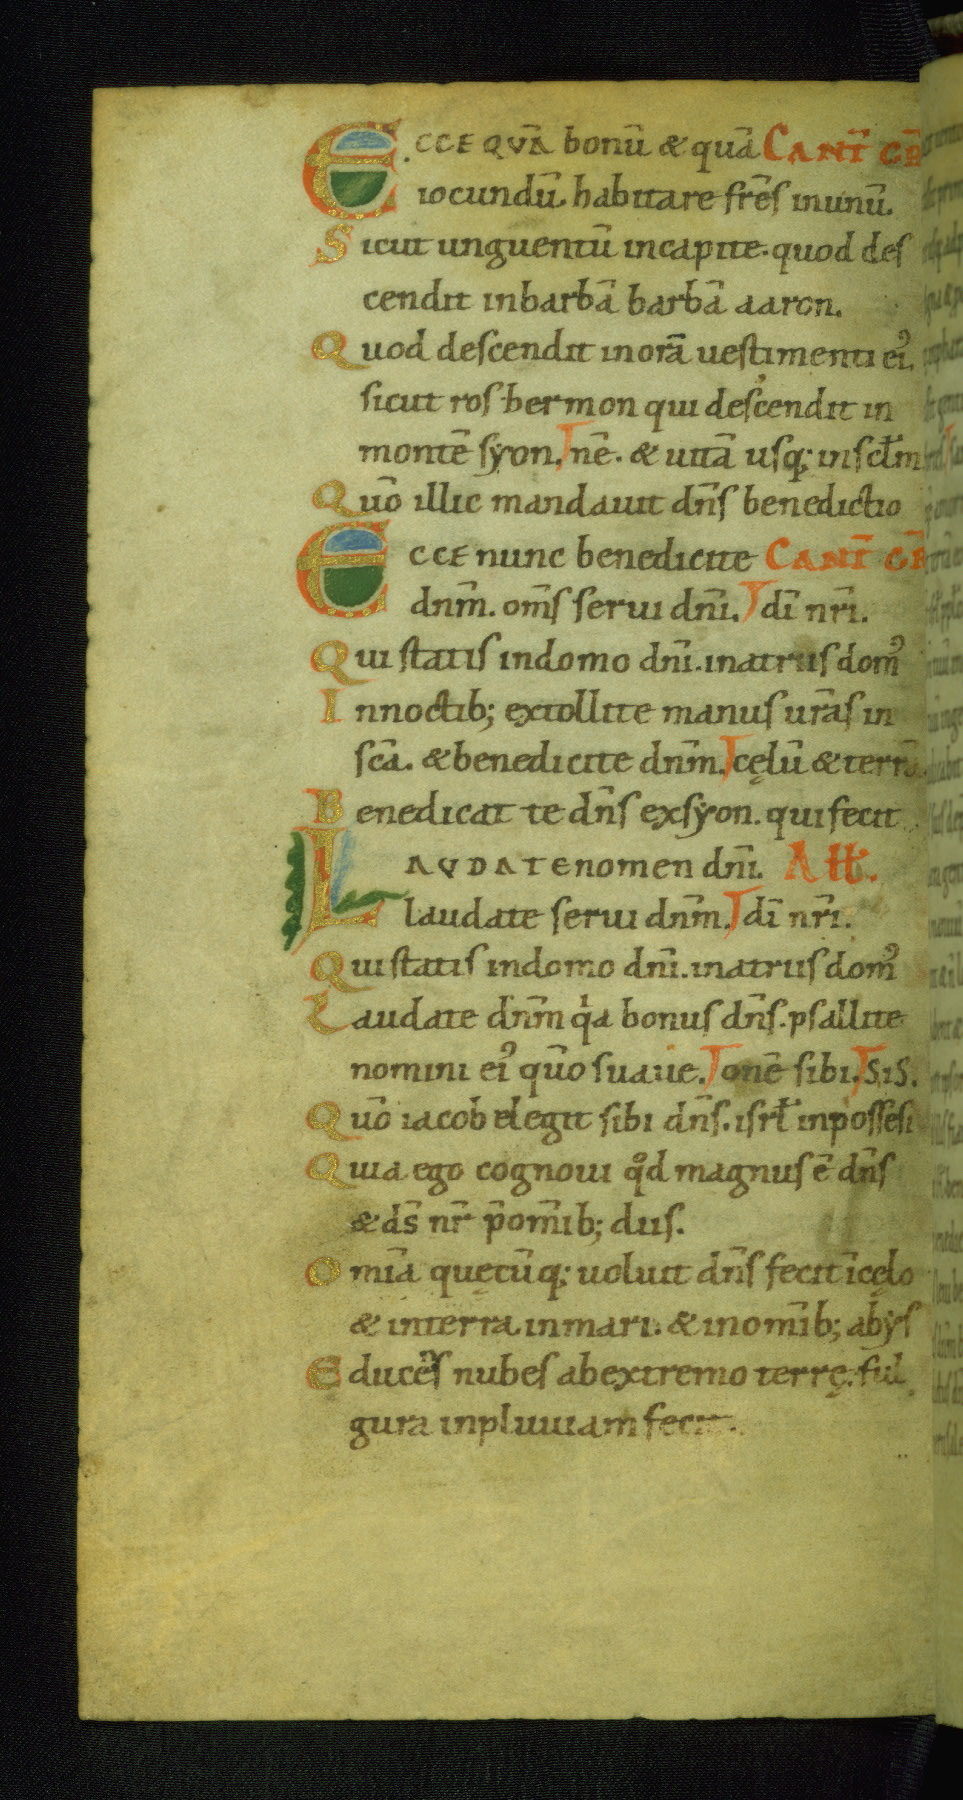 ECCE QVA̅ bonu̅ & qua̅ CANT̅ GR̅
iocundu̅. habitare fr̅es inunu̅.
Sicut unguentu̅ incapite. quod des
cendit inbarba̅ barba̅ aaron.
Quod descendit inora̅ uestimenti ei᾿.
sicut ros hermon qui descendit in
monte̅ syon. ne̅. & uita̅ usq; inscl̅m
Quo̅ illic mandauit dn̅s benedictio
ECCE nunc benedicite CANT̅ GR̅
dn̅m. om̅s serui dn̅i. di̅ nr̅i.
Qui statis indomo dn̅i. inatriis dom᾿
Innoctib; extollite manus ur̅as in
sc̅a. & benedicite dn̅m. cęlu̅ & terra̅.
Benedicat te dn̅s exsyon. qui fecit
LAVDATE nomen dn̅i. All̅.
laudate serui dn̅m. di̅ nr̅i.
Qui statis indomo dn̅i. inatriis dom᾿
Laudate dn̅m qia bonus dn̅s. psallite
nomini ei᾿ quo̅ suaue. one̅ sibi. SiS.
Quo̅ iacob elegit sibi dn̅s. isrl̅ inpossesi
Quia ego cognoui qod magnus e̅ dn̅s
& ds̅ nr̅ p̅ om̅ib; diis.
Omi̅a quęcu̅q; uoluit dn̅s fecit i̅cęlo
& interra. inmari. & inom̅ib; abys
Educe̅s nubes abextremo terrę. ful
gura inpluuiam fecit.